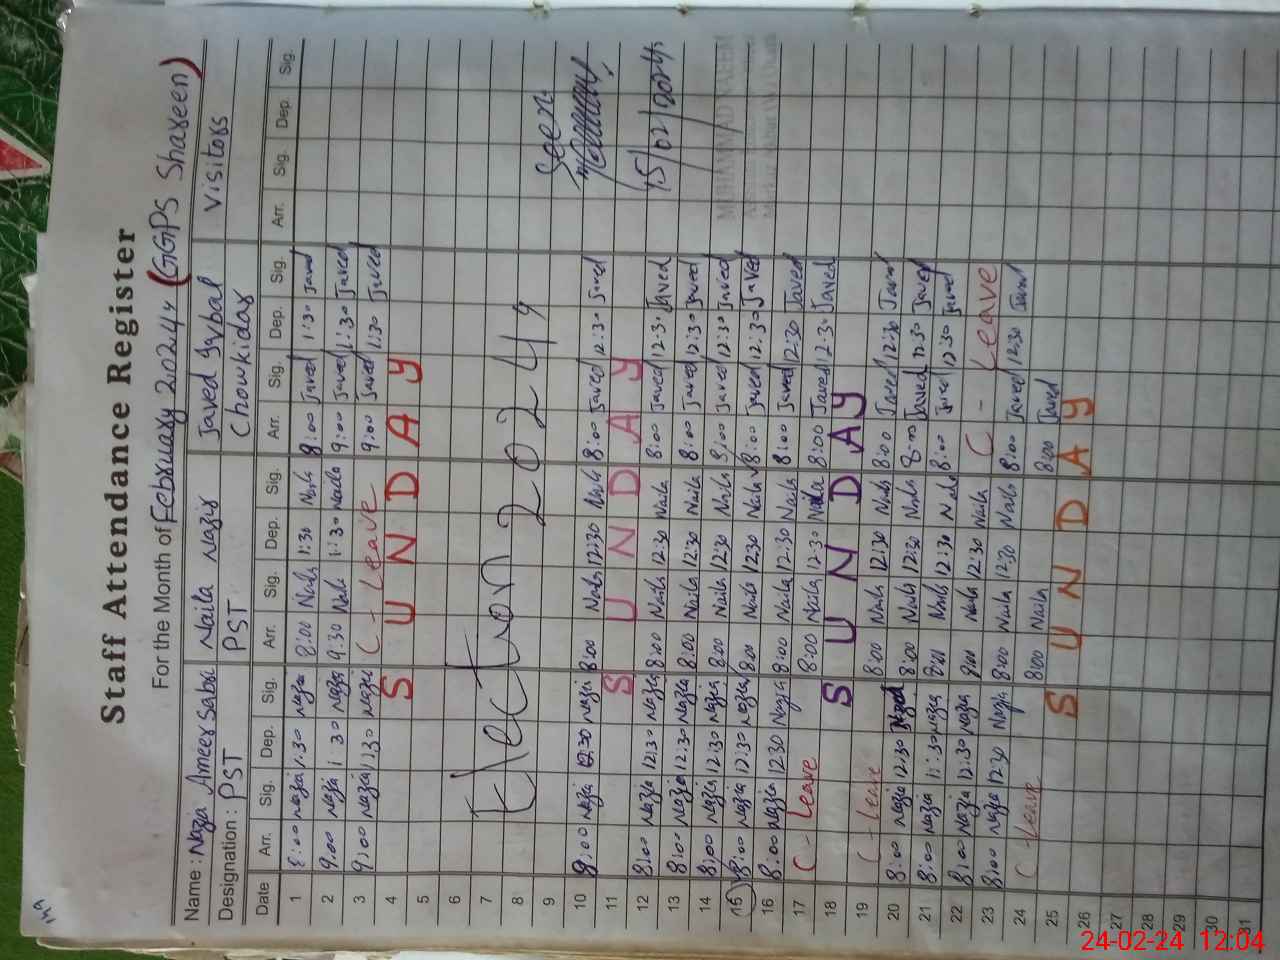 Staff Attendance Register
For the Month of February 2024 (GGPS Shaheen)
Name: Nazia Ameer Sabri Naila Nazir Javed Iqbal Visitors
Designation: PST PST Chowkidar
Date Arr. Sig. Dep. Sig. Arr. Sig. Dep. Sig. Arr. Sig. Dep. Sig. Arr. Sig. Dep. Sig.
1 8:00 nazia 1:30 nazia 8:00 Naila 1:30 Naila 8:00 Javed 1:30 Javed
2 9:00 nazia 1:30 nazia 9:30 Naila 1:30 Naila 9:00 Javed 1:30 Javed
3 9:00 nazia 1:30 nazia C-Leave 9:00 Javed 1:30 Javed
4 SUNDAY
5
6
7 Election 2024
8
9 Seen
10 8:00 nazia 12:30 nazia 8:00 Naila 12:30 Naila 8:00 Javed 12:30 Javed
11 SUNDAY
12 8:00 nazia 12:30 nazia 8:00 Naila 12:30 Naila 8:00 Javed 12:30 Javed 15/02/2024
13 8:00 nazia 12:30 nazia 8:00 Naila 12:30 Naila 8:00 Javed 12:30 Javed
14 8:00 nazia 12:30 nazia 8:00 Naila 12:30 Naila 8:00 Javed 12:30 Javed
15 8:00 nazia 12:30 nazia 8:00 Naila 12:30 Naila 8:00 Javed 12:30 Javed
16 8:00 nazia 12:30 Nazia 8:00 Naila 12:30 Naila 8:00 Javed 12:30 Javed
17 C-Leave 8:00 Naila 12:30 Naila 8:00 Javed 12:30 Javed
18 SUNDAY
19 C-Leave 8:00 Naila 12:30 Naila 8:00 Javed 12:30 Javed
20 8:00 nazia 12:30 8:00 Naila 12:30 Naila 8:00 Javed 12:30 Javed
21 8:00 nazia 1:30 nazia 8:00 Naila 12:30 Naila 8:00 Javed 12:30 Javed
22 8:00 nazia 12:30 nazia 8:00 Naila 12:30 Naila C-Leave
23 8:00 nazia 12:30 Nazia 8:00 Naila 12:30 Naila 8:00 Javed 12:30 Javed
24 C-Leave 8:00 Naila 8:00 Javed
25 SUNDAY
26
27
28
29
30
31
24-02-24 12:04